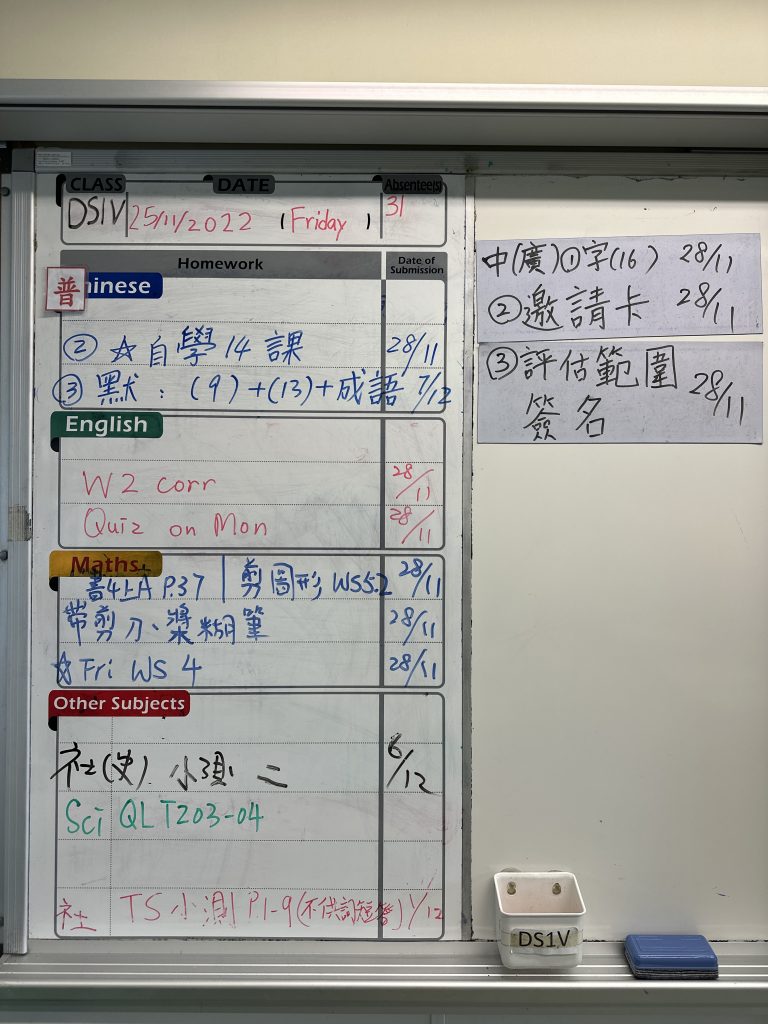 CLASS DATE Absentee(s)
DS1V 25/11/2022 (Friday) 31
Homework Date of Submission
普 Chinese
② ☆自學14課 28/11
③ 默：(9)+(13)+成語 7/12
English
W2 corr 28/11
Quiz on Mon 28/11
Maths
書4上A P.37 | 剪圖形 WS5.2 28/11
帶剪刀、漿糊筆 28/11
☆Fri WS 4 28/11
Other Subjects
社(史) 小測 二 6/12
Sci QLT203-04
社 TS小測 P.1-9(不供詞短答) 1/12
中(廣)①字(16) 28/11
②邀請卡 28/11
③評估範圍 28/11
簽名
DS1V